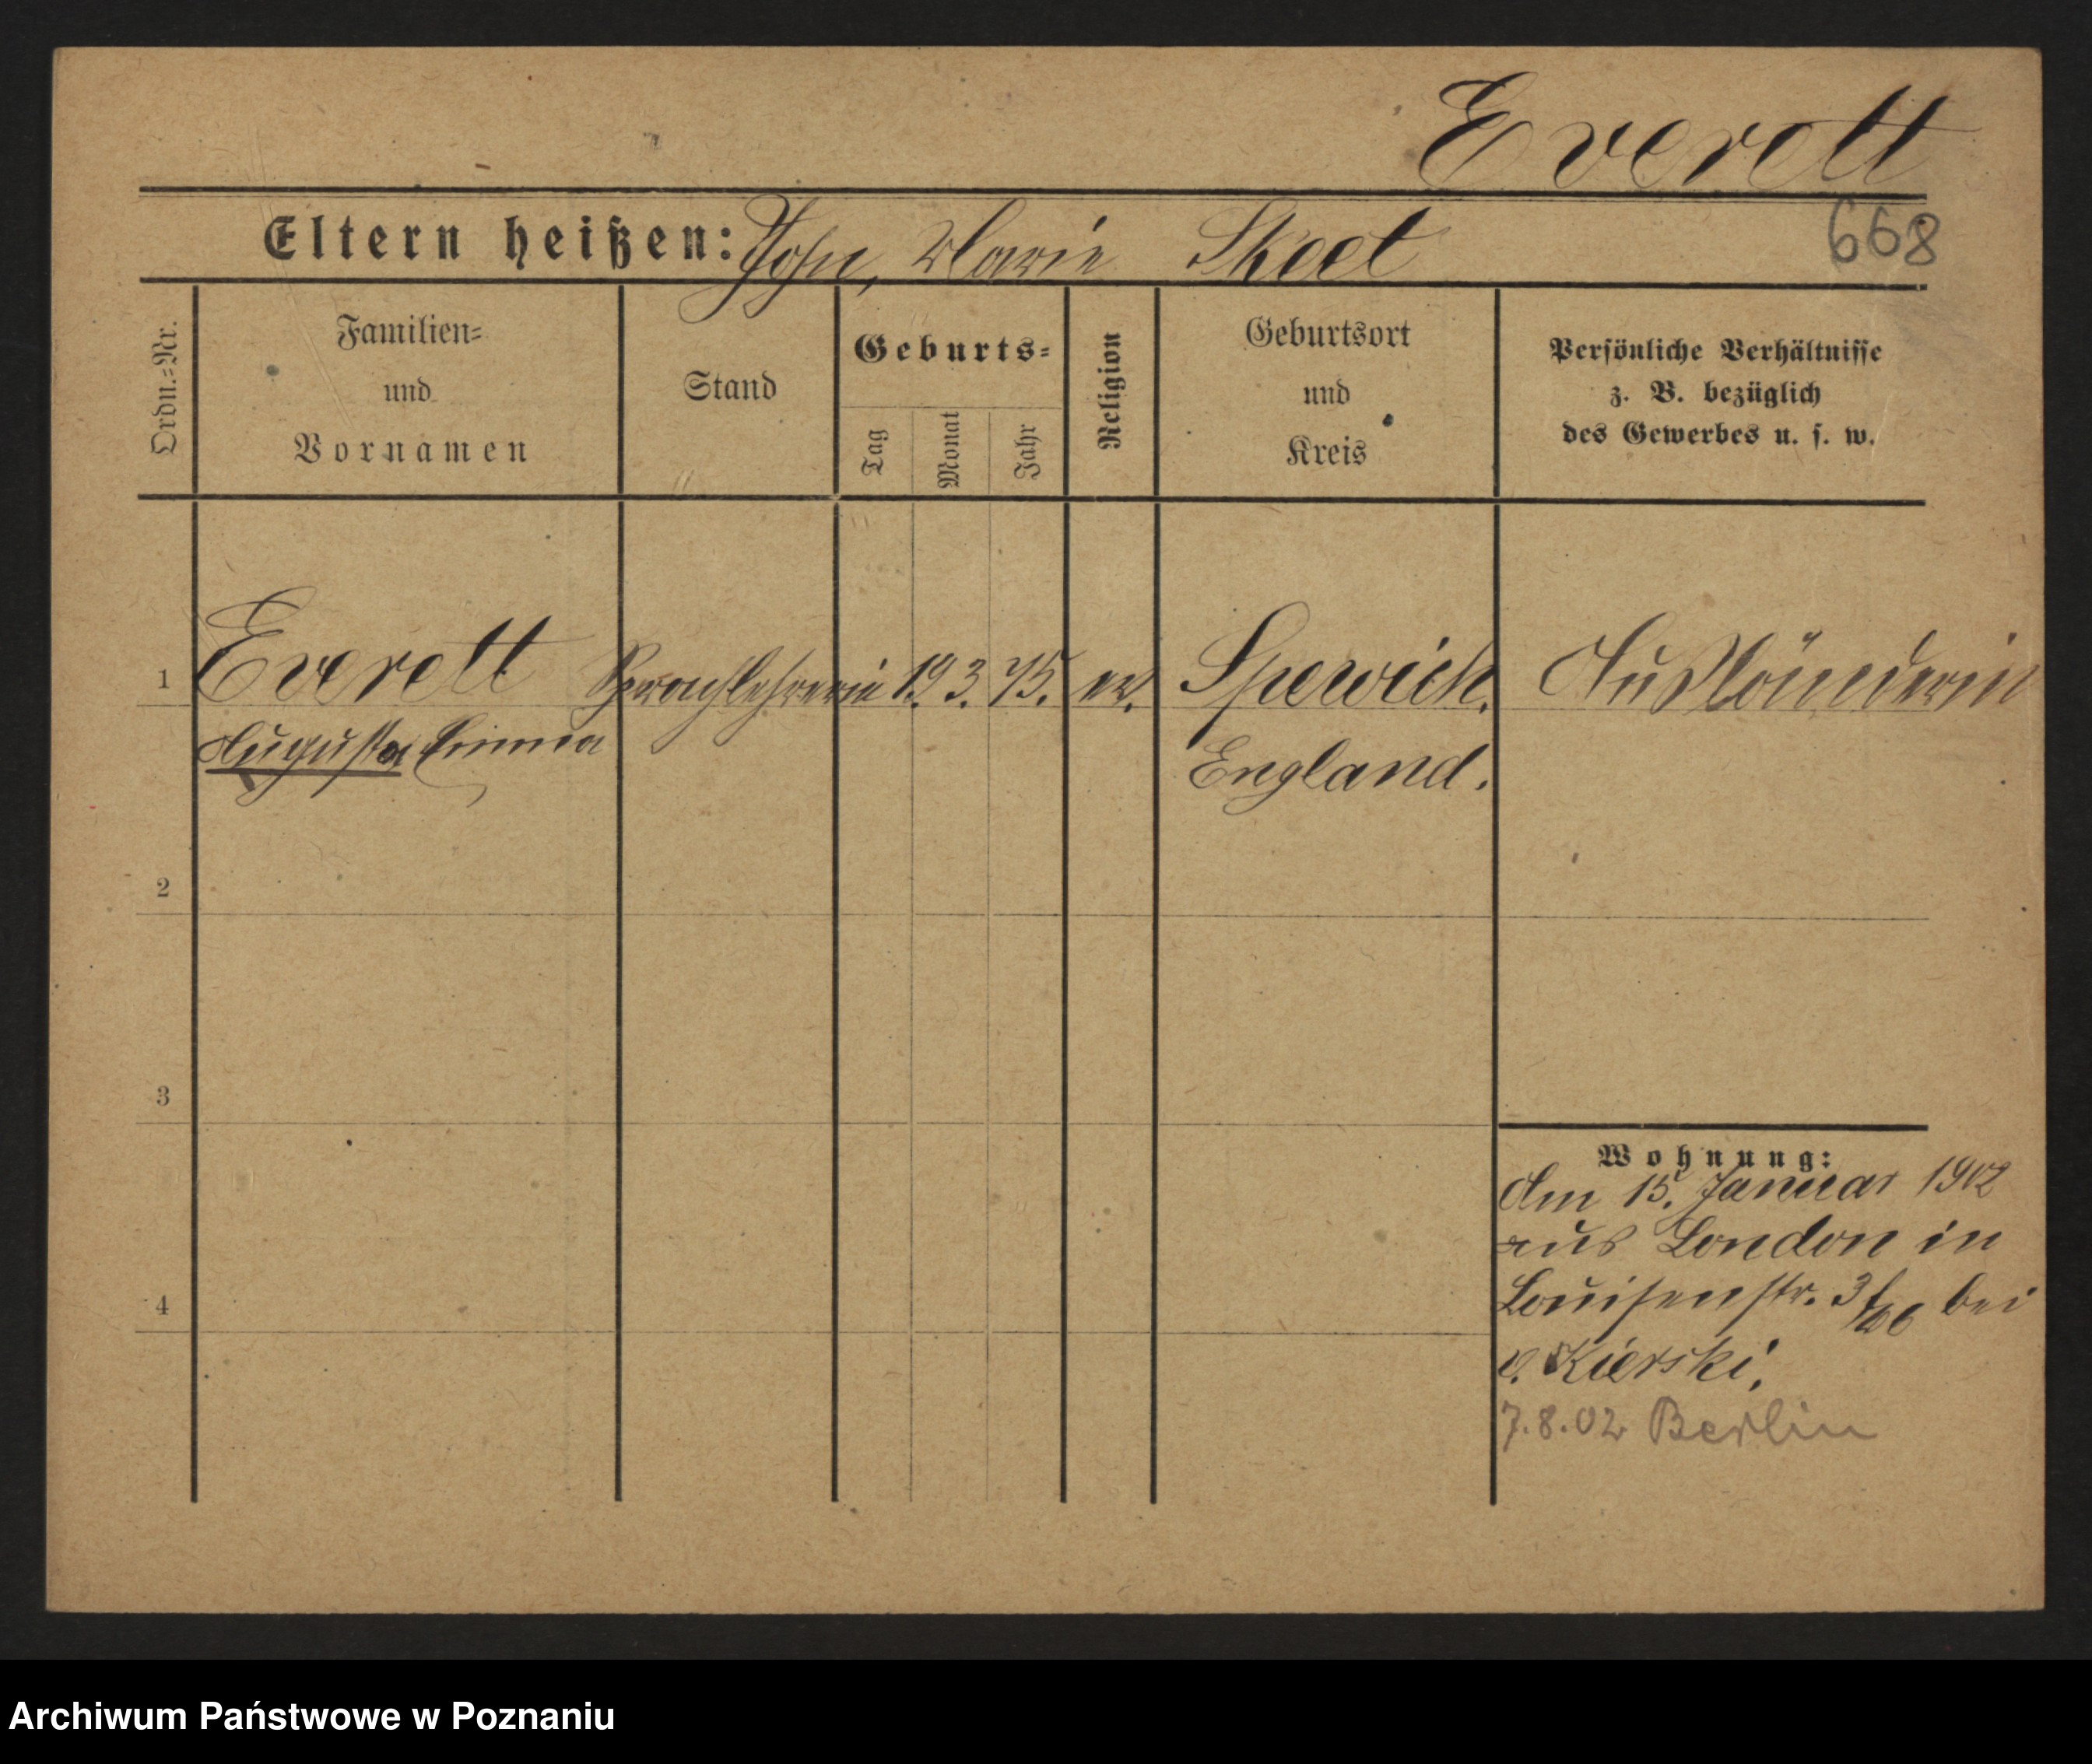 Everett
668
Eltern heißen: John, Marie Skeet
Ordn.=Nr.
Familien=
und
Vornamen
Stand
Geburts=
Tag
Monat
Jahr
Religion
Geburtsort
und
Kreis
Persönliche Verhältnisse
z. B. bezüglich
des Gewerbes u. s. w.
1 Everett Sprachlehrerin 19. 3. 75. ev. Spewich. Ausländerin
Augusta Emma England.
2
3
4
Wohnung:
Am 15. Januar 1902
aus London in
Louisenstr. 3 bei
v. Kierski,
7.8.02 Berlin
Archiwum Państwowe w Poznaniu